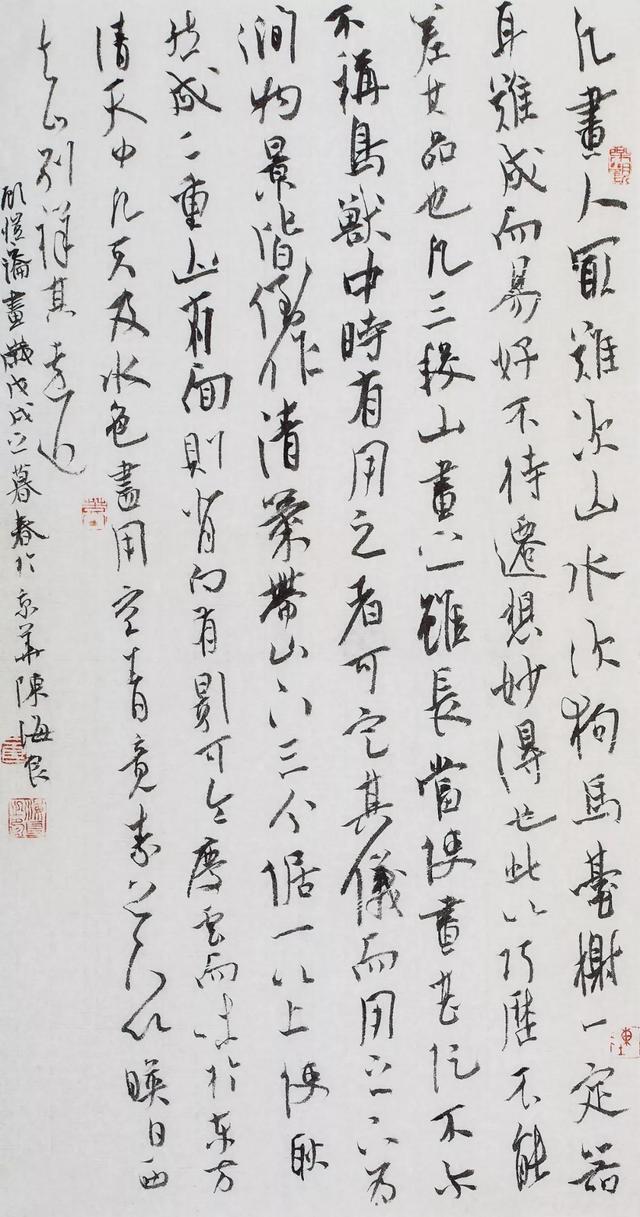 凡畫人最難次山水次狗馬臺榭一定器
耳難成而易好不待遷想妙得也此以巧歷不能
差其品也凡三段山畫之雖長當使畫甚促不尔
不稱鳥獸中時有用之者可定其儀而用之下為
澗物景皆倒作清氣帶山下三分倨一以上使耿
然成二重山有面則背向有影可令慶雲而吐於东方
清天中凡天及水色盡用空青竟素上下以暎日西
去山別詳其遠近
顧愷論畫 戊戌之暮春於京華陳海良